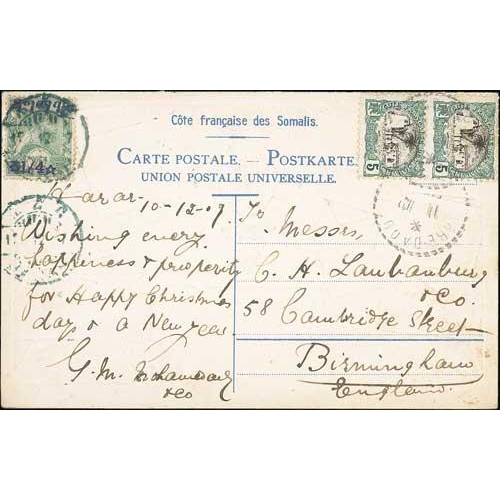 Côte française des Somalis.
CARTE POSTALE. — POSTKARTE.
UNION POSTALE UNIVERSELLE.
1/4
5
5
Harar
10-12-07
Wishing every
happiness & prosperity
for Happy Christmas
days & a New year
G. M.
& co
To
Messrs,
C. H.
& Co.
58 Cambridge Street
Birmingham
England